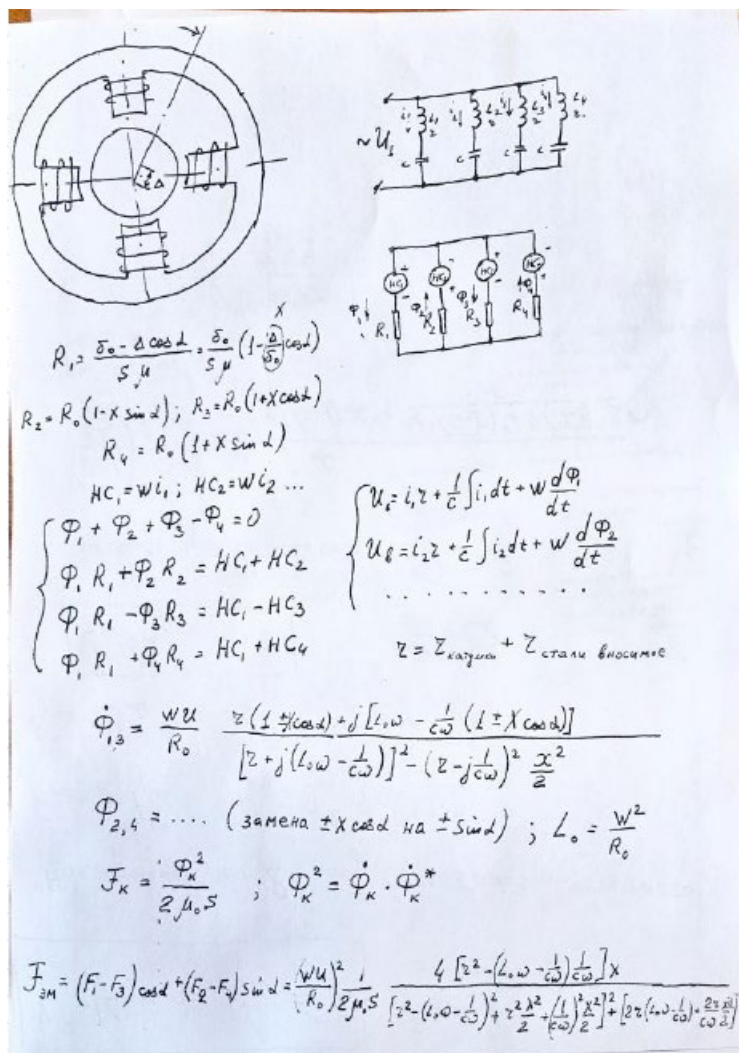 Δ
i₁ L₁ r c i₂ L₂ r c i₃ L₃ r c i₄ L₄ r c
~U₁
НС₁ НС₂ НС₃ НС₄
Φ₁ R₁ R₂ Φ₃ R₃ R₄
x
R₁ = (δ₀ - Δ cos α)/(S μ) = δ₀/(S μ) (1 - (Δ/δ₀) cos α)
R₂ = R₀ (1 - X sin α) ; R₃ = R₀ (1 + X cos α)
R₄ = R₀ (1 + X sin α)
НС₁ = W i₁ ; НС₂ = W i₂ ...
Φ₁ + Φ₂ + Φ₃ - Φ₄ = 0
Φ₁ R₁ + Φ₂ R₂ = НС₁ + НС₂
Φ₁ R₁ - Φ₃ R₃ = НС₁ - НС₃
Φ₁ R₁ + Φ₄ R₄ = НС₁ + НС₄
U₈ = i₁ r + 1/c ∫ i₁ dt + W dΦ₁/dt
U₈ = i₂ r + 1/c ∫ i₂ dt + W dΦ₂/dt
. . . . . . . . . . .
r = r катушки + r стали вносимое
Φ̇₁,₃ = WU/R₀ · (r (1 ± X cos α) + j [L₀ω - 1/cω (1 ± X cos α)]) / ([r + j (L₀ω - 1/cω)]² - (r - j 1/cω)² x²/2)
Φ₂,₄ = .... (замена ± X cos α на ± sin α) ; L₀ = W²/R₀
Fк = Φк²/(2 μ₀ S) ; Φк² = Φ̇к · Φ̇к*
Fэм = (F₁ - F₃) cos α + (F₂ - F₄) sin α = (WU/R₀)² 1/(2 μ₀ S) · 4 [r² - (L₀ω - 1/cω) 1/cω] X / ([r² - (L₀ω - 1/cω)² + r² X²/2 + (1/cω)² X²/2]² + [2r (L₀ω - 1/cω) + 2r/cω X²/2]²)